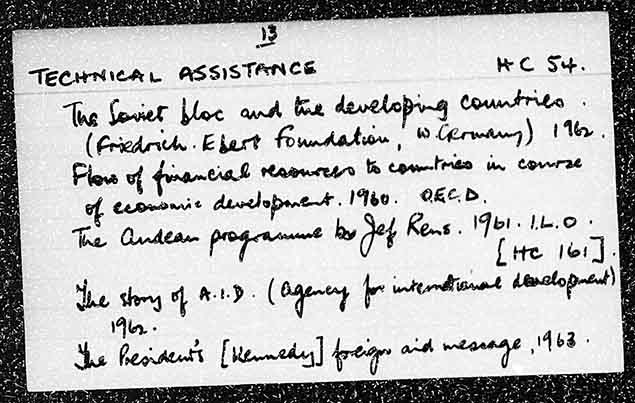 13
TECHNICAL ASSISTANCE HC 54.
The Soviet bloc and the developing countries.
(Friedrich Ebert Foundation, W. Germany) 1962.
Flow of financial resources to countries in course
of economic development. 1960. O.E.C.D.
The Andean programme by Jef Rens. 1961. I.L.O.
[HC 161].
The story of A.I.D. (Agency for international development)
1962.
The President's [Kennedy] foreign aid message, 1963.